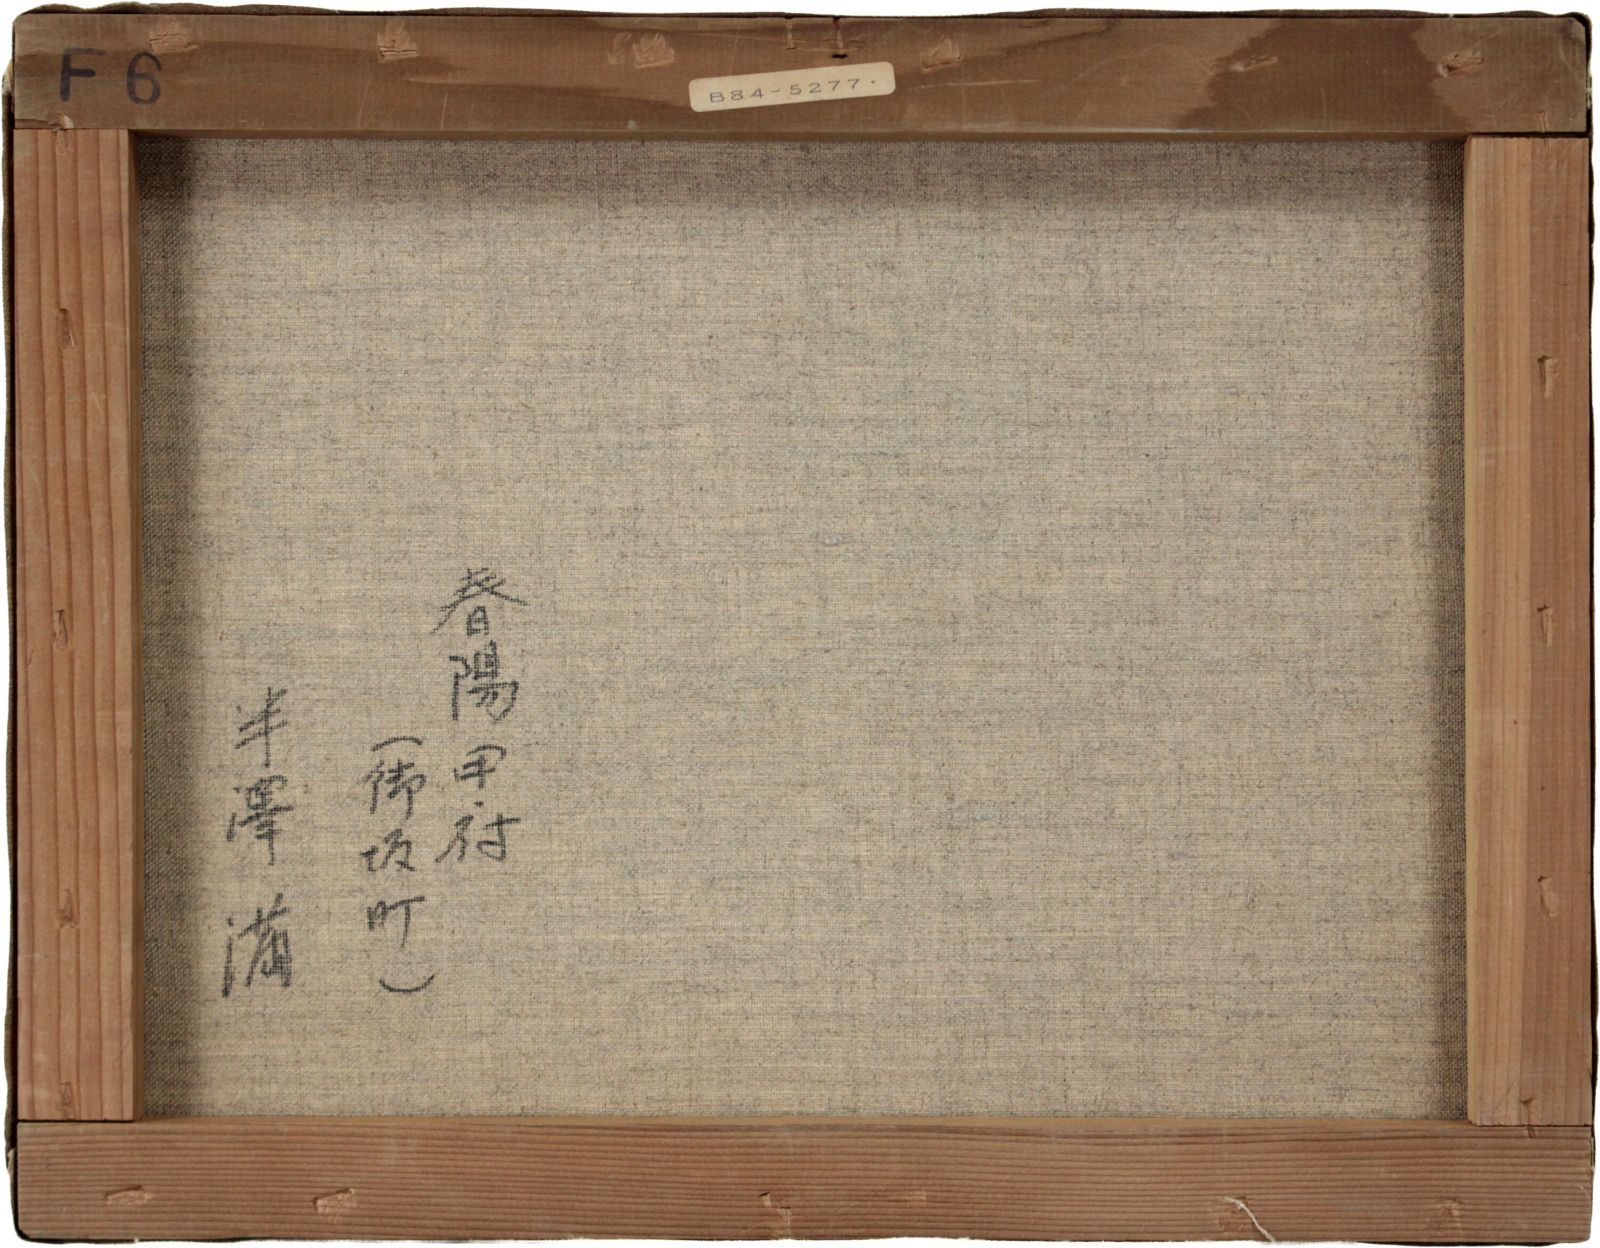 F6
B84-5277.
春陽甲府
(御坂町)
半澤 満